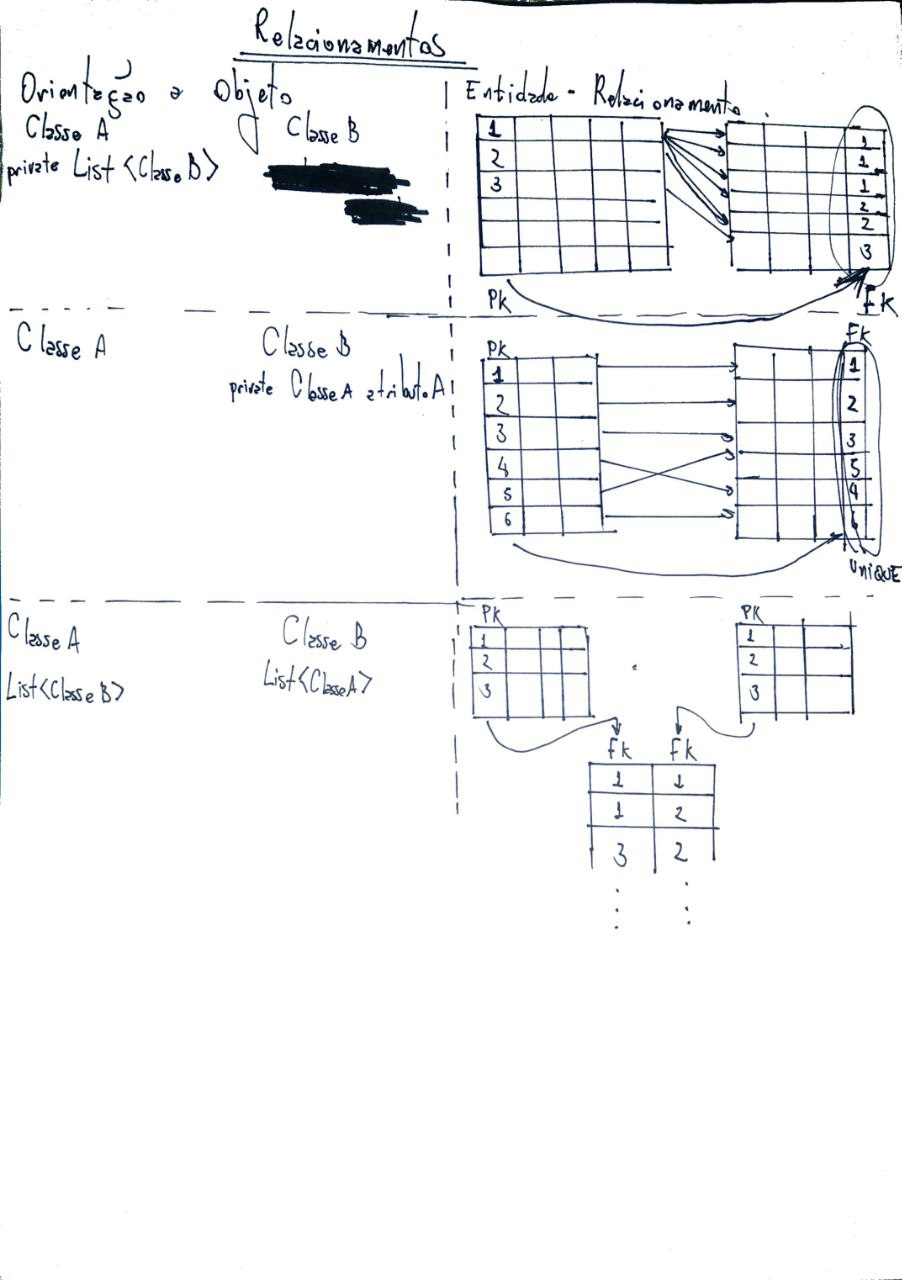 Relacionamentos
Orientação a Objeto
Classe A
Classe B
private List <Classe B>
Entidade - Relacionamento
1
2
3
1
1
1
2
2
3
PK
FK
Classe A
Classe B
private Classe A atributoA
PK
1
2
3
4
5
6
FK
1
2
3
5
4
6
UNIQUE
Classe A
Classe B
List<Classe B>
List<ClasseA>
PK
1
2
3
PK
1
2
3
FK FK
1 1
1 2
3 2